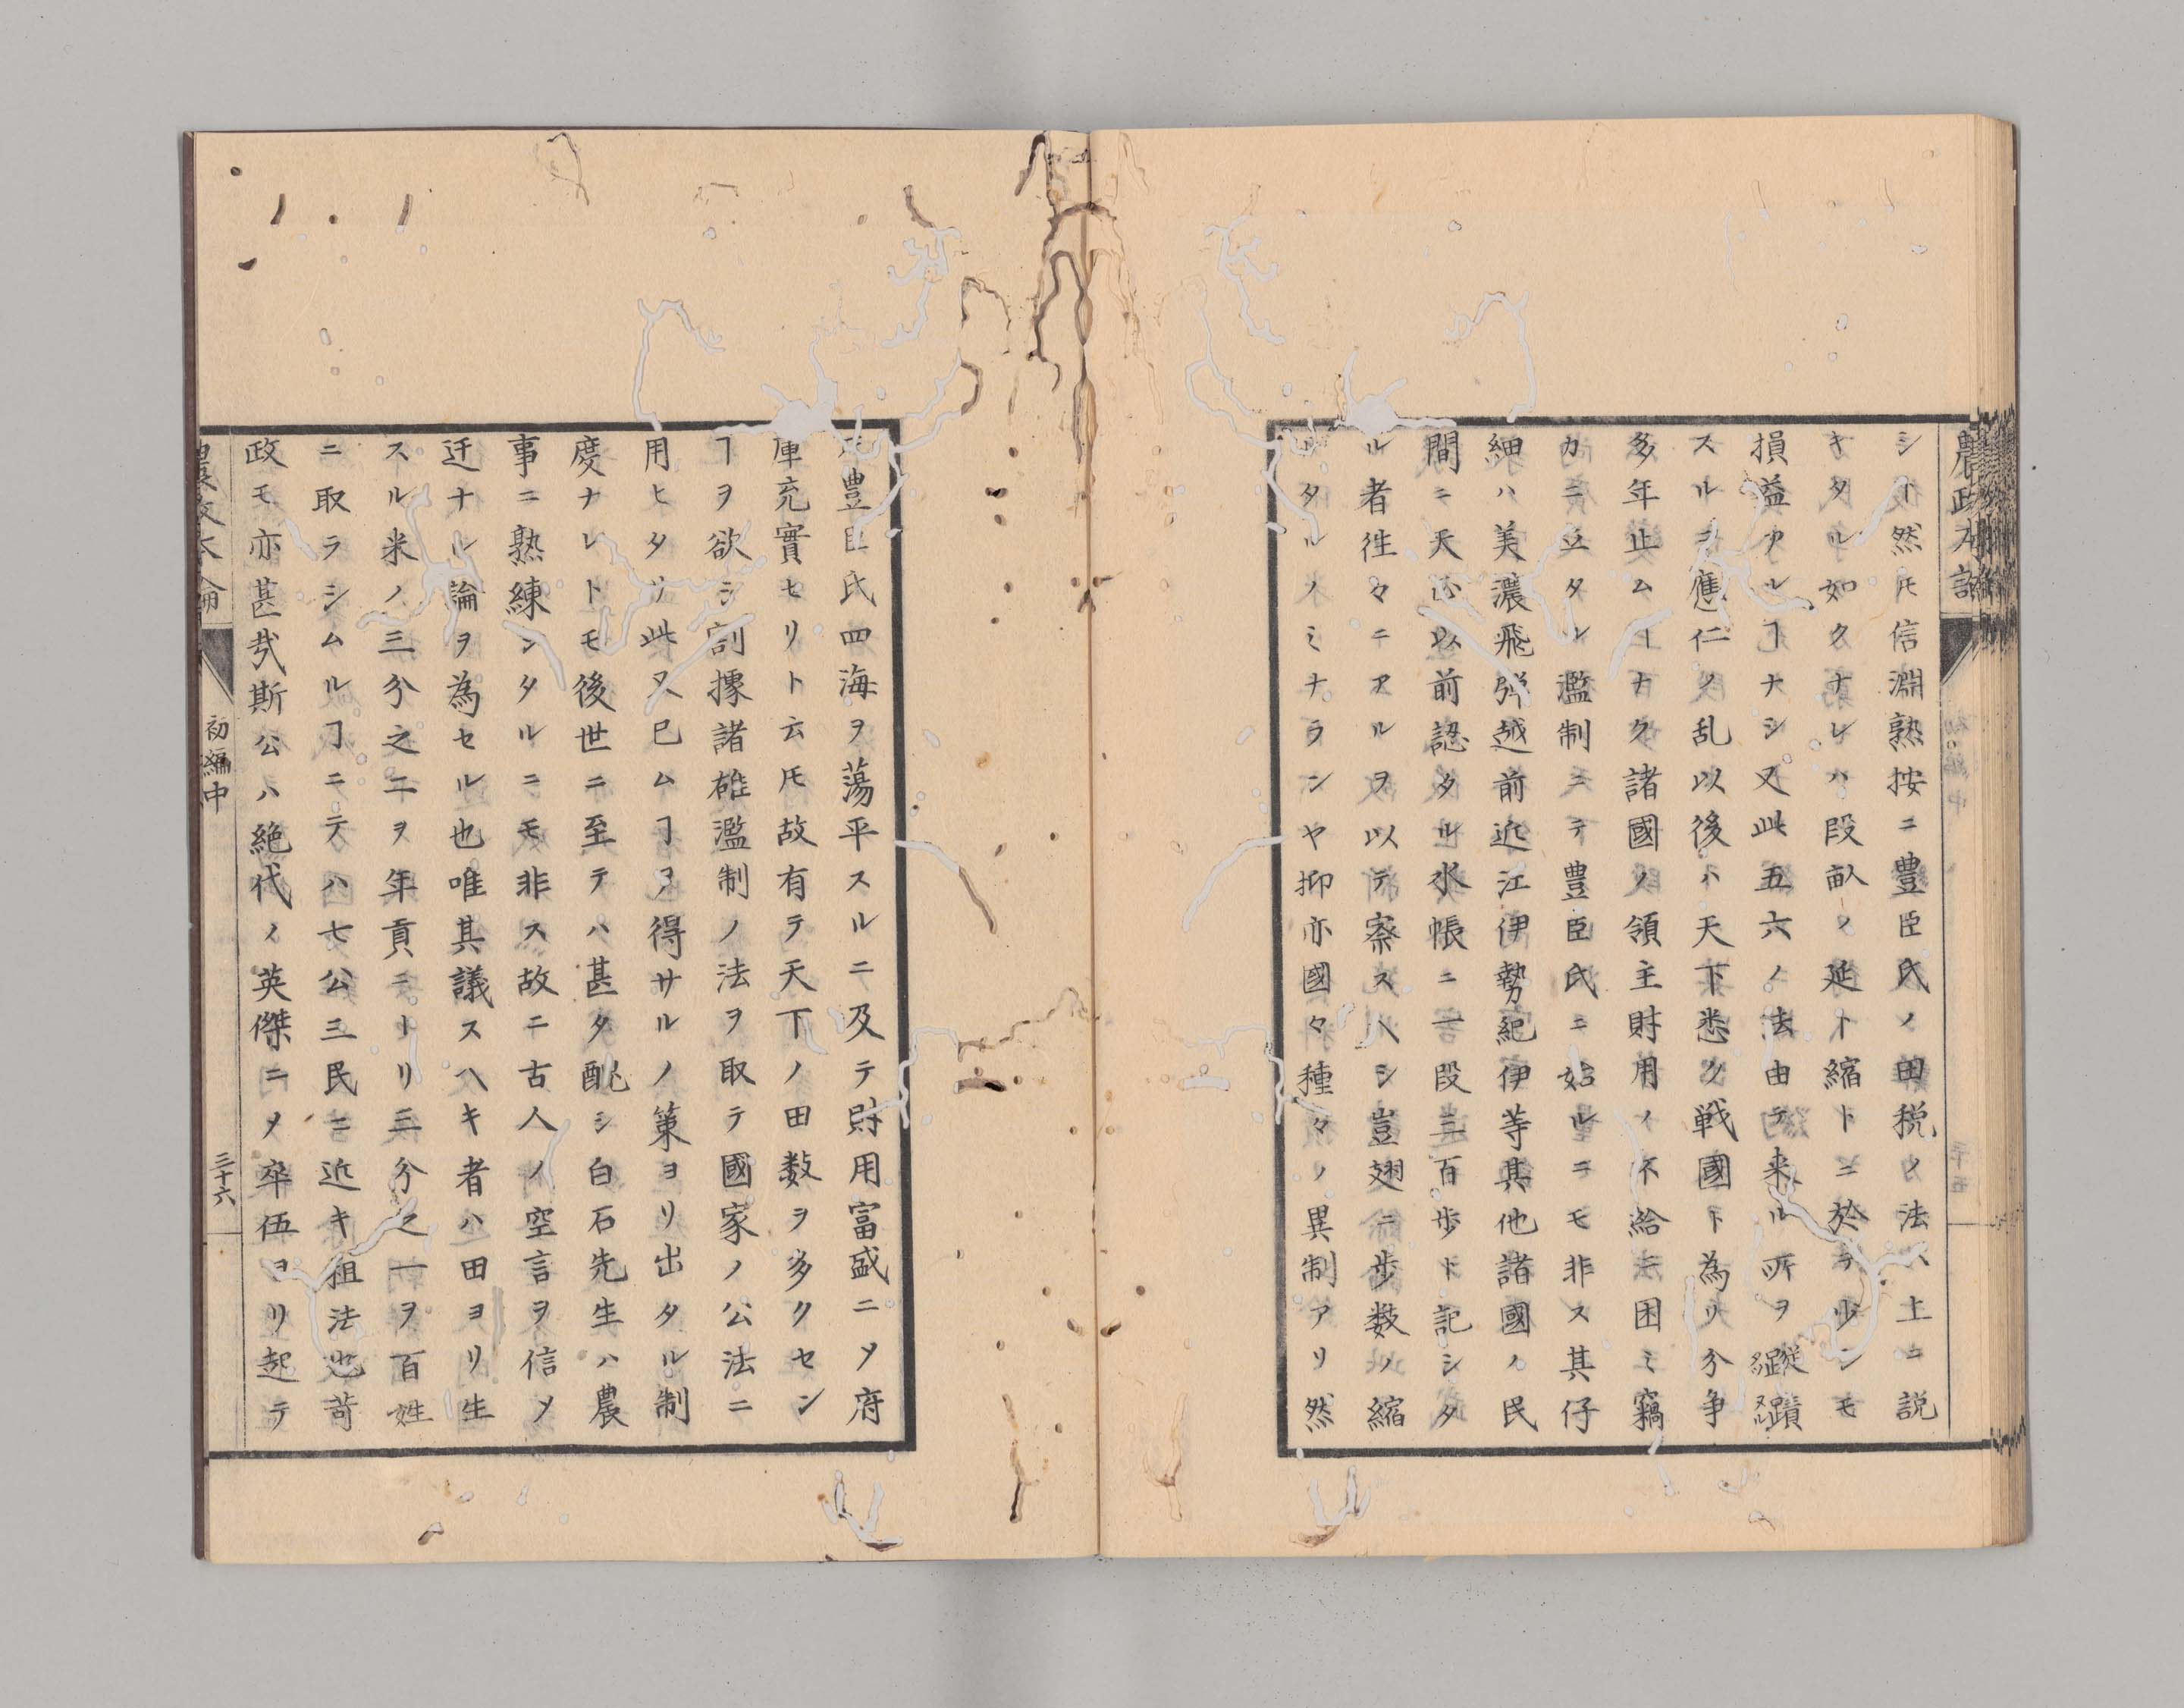 農政本論
シト然𪜈信淵熟按ニ豊臣氏ノ田税ノ法ハ上ニ説
キタル如クナレハ段畝ノ延ト縮トニ於テ少シモ
損益アルヿナシ又此五六ノ法由テ来ル所ヲ縱蹟スルニ
スルヲ應仁ノ乱以後ハ天下悉ク戦國ト為リ分争
多年止ムヿナク諸國ノ領主財用ノ不給ニ困ミ竊
カニ立タル濫制ニテ豊臣氏ニ始ルニモ非ス其仔
細ハ美濃飛弾越前近江伊勢紀伊等其他諸國ノ民
間ニ天正以前認タル水帳ニ一段三百歩ト記シタ
ル者徃々ニアルヲ以テ察スヘシ豈翅ニ歩数ノ縮
タルノミナランヤ抑亦國々種々ノ異制アリ然
豊臣氏四海ヲ蕩平スルニ及テ財用富盛ニメ府
庫充實セリト云𪜈故有テ天下ノ田数ヲ多クセン
ヿヲ欲シ割據諸雄濫制ノ法ヲ取テ國家ノ公法ニ
用ヒタリ此又已ムヿヲ得サルノ策ヨリ出タル制
度ナレトモ後世ニ至テハ甚タ酷シ白石先生ハ農
事ニ熟練シタルニモ非ス故ニ古人ノ空言ヲ信メ
迂ナル論ヲ為セル也唯其議スヘキ者ハ田ヨリ生
スル米ノ三分之二ヲ年貢ニトリ三分之一ヲ百姓
ニ取ラシムルヿニテハ七公三民ニ近キ租法也苛
政モ亦甚哉斯公ハ絶代ノ英傑ニメ卒伍ヨリ起テ
農政本論
初編中
三十六